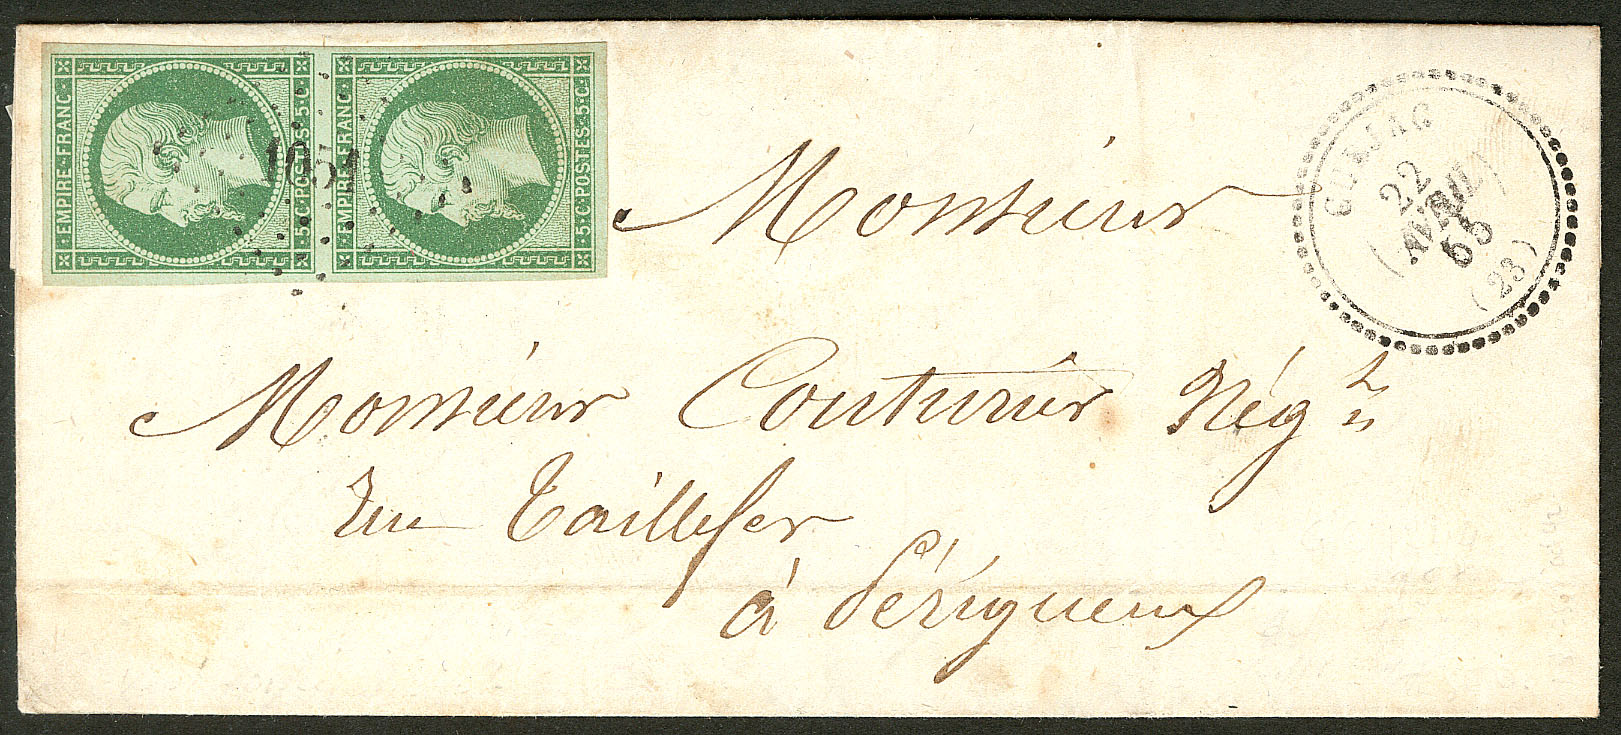 EMPIRE-FRANC· ·5·C·POSTES·5·C·
EMPIRE-FRANC· ·5·C·POSTES·5·C·
1051
22
AVRIL
55
(23)
Monsieur
Monsieur Couturier Nég.ᵗ
Rue Taillefer
à Périgueux